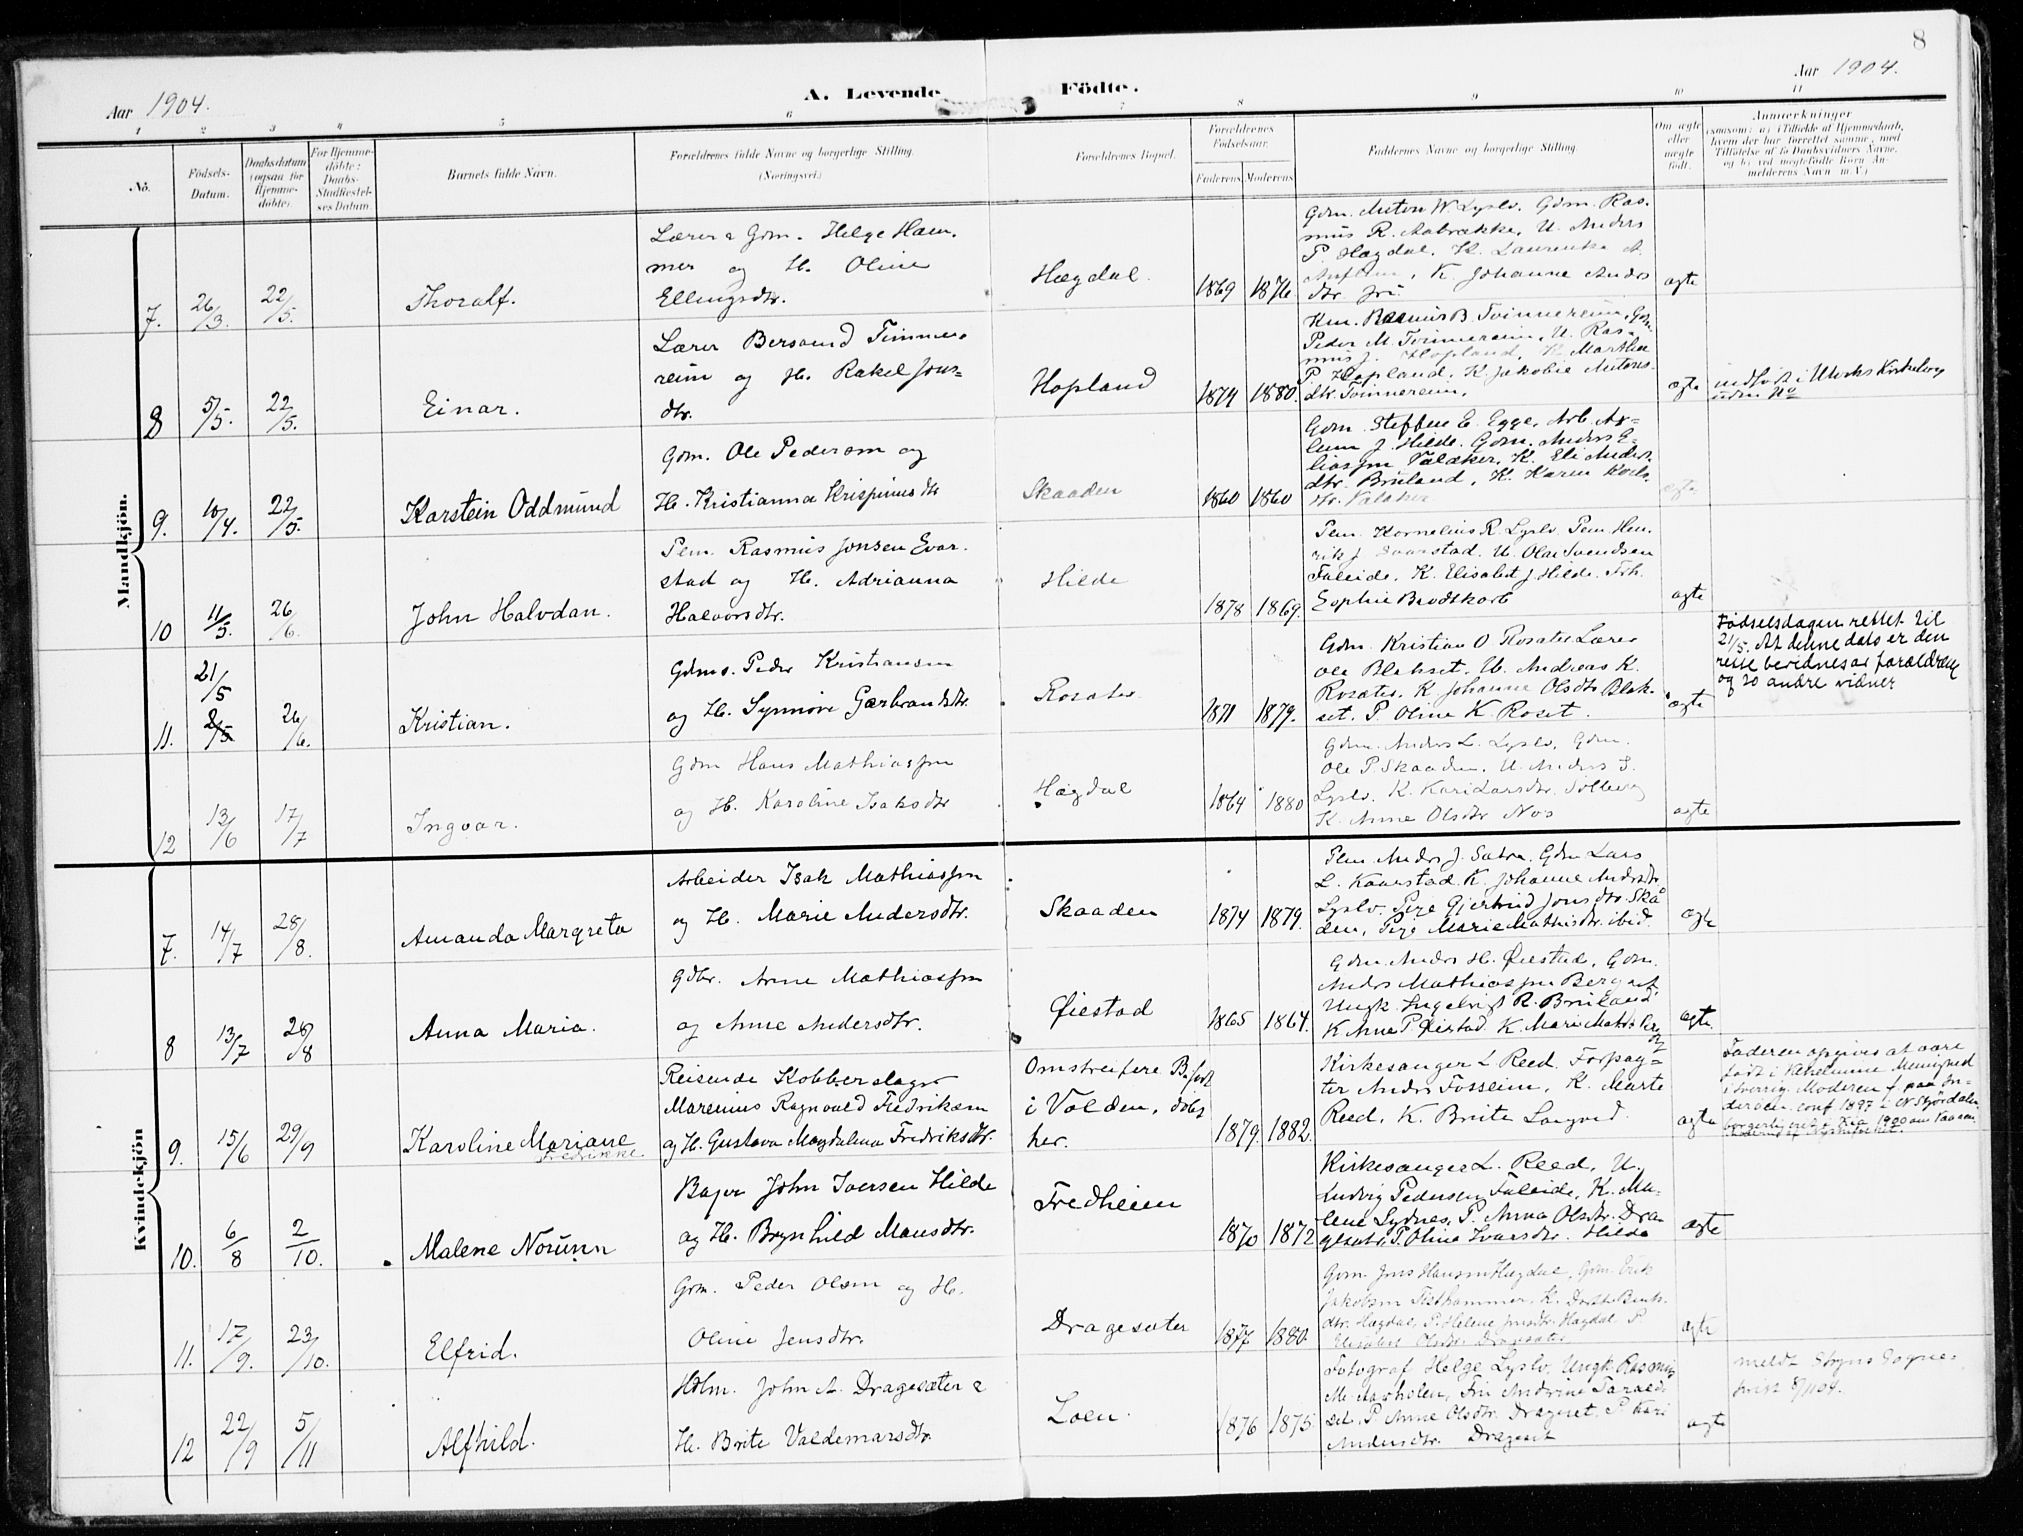 8
Aar 1904.
A. Levende Födte.
Aar 1904.
1 2 3 4 5 6 7 8 9 10 11
No.
Födsels-
Datum.
Daabsdatum
(ogsaa for
Hjemme-
döbte).
For Hjemme-
döbte:
Daabs-
Stadfæstel-
ses Datum.
Barnets fulde Navn.
Forældrenes fulde Navne og borgerlige Stilling.
(Næringsvei.)
Forældrenes Bopæl.
Forældrenes
Födselsaar.
Faderens. Moderens.
Faddernes Navne og borgerlige Stilling.
Om ægte
eller
uægte
født.
Anmærkninger
(saasom: a) i Tilfælde af Hjemmedaab,
hvem der har forrettet samme, med
Tilföielse af to Daabsvidners Navne,
og b) ved uægtefödte Börn An-
melderens Navn m. V.)
Mandkjön.
7. 26/3. 22/5. Thoralf.
Lærer & Gdm. Helge Ham-
mer og H. Oline
Ellingsdtr.
Hægdal.
1869 1876
Gdm. Anton W. Lyslo. Gdm. Ras-
mus R. Aabrække, U. Anders
P. Hægdal, K. Laurentze A.
K. Johanne Anders
dtr.
ægte
8 5/5. 22/5. Einar.
Lærer Bersvend Tinnme-
reim og H. Rakel Jons-
dtr.
Hopland
1874 1880.
Km. Rasmus B. Tvinnereim, Gdm.
Peder M. Tvinnereim, U. Ras-
mus J. Hopland, K. Marthe
P. Hopland. K. Jakobie Antons-
dtr. Tvinnereim.
ægte
indført i Kirkebog
uden No
9. 10/4. 22/5. Karstein Oddmund
Gdm. Ole Pedersen og
H. Kristianna Krispinusdtr
Skaaden
1860 1860
Gdm. Steffen E. Egge, Arb. An-
J. Hilde. Gdm. Anders E-
liassen Valaker, K. Eli Anders-
dtr. Bruland, K. Karen Karls-
dtr. Valaker
ægte
10 11/5. 26/6. John Halvdan.
Pem. Rasmus Jonsen Evar-
stad og H. Adrianna
Halvorsdtr.
Hilde
1878 1869.
Pem. Kornelius R. Lyslo. Pem. Hen-
rik J. U. Olav Svendsen
Faleide, K. Elisabet J. Hilde. Frk.
Sophie Brodtkorb
ægte
11. 21/5 2/5 26/6. Kristian.
Gdms. Peder Kristiansen
og H. Synnøve Gerbrandsdtr.
Rosater
1871 1879.
Gdm. Kristian O Rosater Lærer
Ole Blakset. U. Andreas K.
Rosater. K. Johanne Olsdtr Blak-
set. P. Oline K. Roset.
ægte
Fødselsdagen rettet til
21/5. At denne dato er den
rette bevidnes av forældrene
og to andre vidner
12 13/6 17/7 Ingvar.
Gdm Hans Mathiassen
og H. Karoline Isaksdtr
Hægdal
1864 1880
Gdm. Anders L. Lyslo, Gdm.
Ole P. Skaaden, U. Anders S.
Lyslo. K. Kari Larsdtr. Solberg
K. Anne Olsdtr Nos
ægte
Kvindekjön
7. 14/7 28/8. Amanda Margreta
Arbeider Isak Mathiassen
og H. Marie Andersdtr.
Skaaden
1874 1879.
Pem. Anders J. Sætre. Gdm Lars
L. Kaarstad. K. Johanne Andersdtr
Lyslo. Pige Gjertrud Jonsdtr Skå
den, Pige Marie Mathisdtr. ibid.
ægte
8 13/7 28/8 Anna Maria.
Gdbr. Arne Mathiassen
og Anne Andersdtr.
Øiestad
1865 1864.
Gdm. Anders H. Øiestad, Gdm.
Anders Mathiassen Berg
Ungk. Ingebrigt R. Bruland
K Anne P Øistad. K. Marie
ægte.
9. 15/6 29/9 Karoline Mariane
Fredrikke
Reisende Kobberslager
Marenius Ragnvald Fredriksen
og H. Gustava Magdalena Fredriksdtr.
Omstreifere B. født
i Volden, døbt
her.
1879. 1882.
Kirkesanger L Reed. Forpag-
ter Anders Fosseim, K. Marte
Reed, K. Brite Langved.
ægte
Faderen opgives at være
født i Menighed
i Sverrig, Moderen f. paa In-
derøen, conf 1897 i N Stjørdalen
borgerlig 1900
10. 6/8 2/10. Malene Norunn
Bager John Iversen Hilde
og H. Brynhild Monsdtr.
Fredheim
1870 1872
Kirkesanger L. Reed, U.
Ludvig Pedersen Faleide, K. Ma-
lene Sydnes, P. Anna Olsdtr. Dra-
gesæter, P. Oline Ivarsdtr. Hilde
ægte
11. 17/9. 23/10. Elfrid.
Gdm. Peder Olsen og H.
Oline Jensdtr.
Dragesæter
1877 1880
Gdm. Jens Hansen Hægdal, Gdm. Erik
Jakobsen Festhammer, K.
dtr. Hægdal, P. Helene Jensdtr. Hægdal, P
Elisabet Olsdtr. Dragesæter
ægte
12 22/9 5/11 Alfhild.
Hdlm. John A. Dragesæter &
H. Brite Valdemarsdtr.
Loen.
1876 1875.
Fotograf Helge Lyslo, Ungk. Rasmus
M. Aarholen, Frk Andrine Taralds
set, P. Anne Olsdtr. Drageset, P Kari
Andersdtr. Drageset
ægte
meldt Stryns Sogne-
prest 8/11 04.